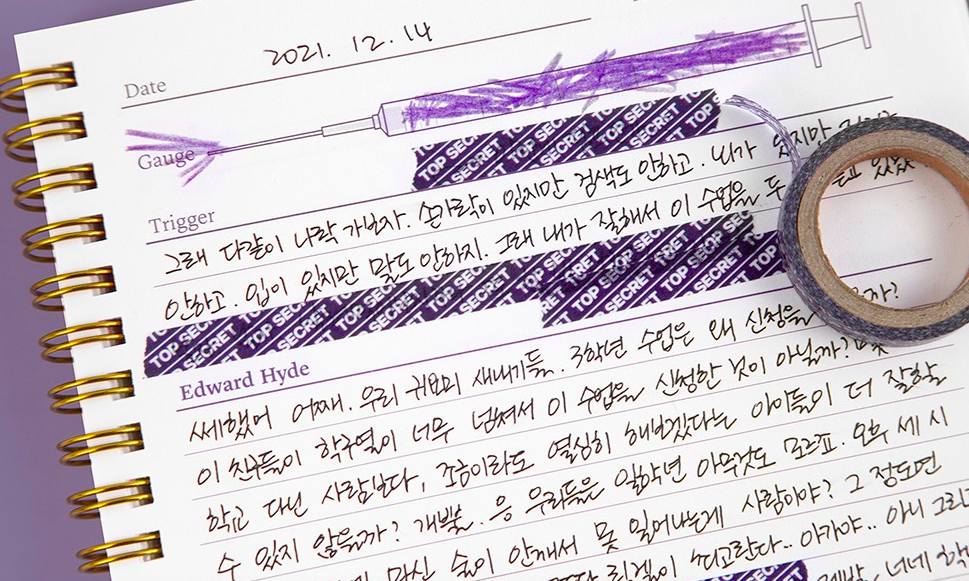 Date
2021. 12. 14
Gauge
TOP SECRET TOP SECRET TOP SECRET TOP SECRET
Trigger
그래 다같이 나락 가보자. 손가락이 있지만 검색도 안하고. 내가 있지만
안하고. 입이 있지만 말도 안하지. 그래 내가 잘해서 이 수업을 두
TOP SECRET TOP SECRET TOP SECRET TOP SECRET TOP SECRET TOP SECRET
Edward Hyde
쎄했어 어째. 우리 귀요미 새내기들. 3학년 수업은 왜 신청을
이 친구들이 학구열이 너무 넘쳐서 이 수업을 신청한 것이 아닐까?
학교 다닌 사람보다, 조금이라도 열심히 해보겠다는 아이들이 더 잘할
수 있지 않을까? 개뿔. 응 우리들은 일학년 아무것도 모르죠. 오후 세 시
마신 술이 안깨서 못 일어나는게 사람이야? 그 정도면
아가야.. 아니 그리
너네